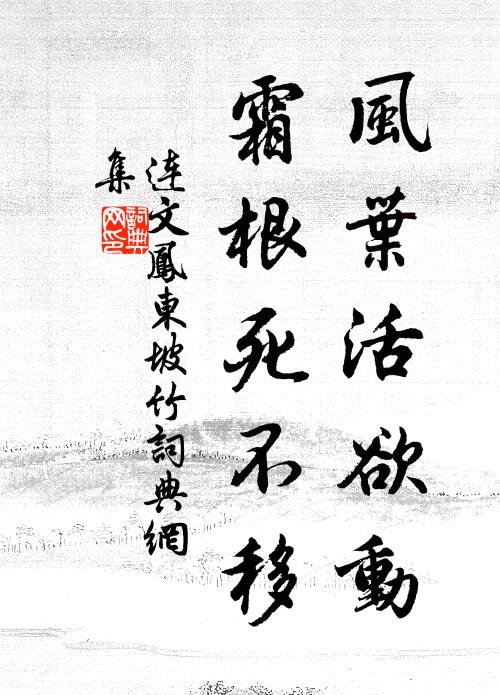 風葉活欲動
霜根死不移
連文鳳東坡竹詞典網
集
詞典网印